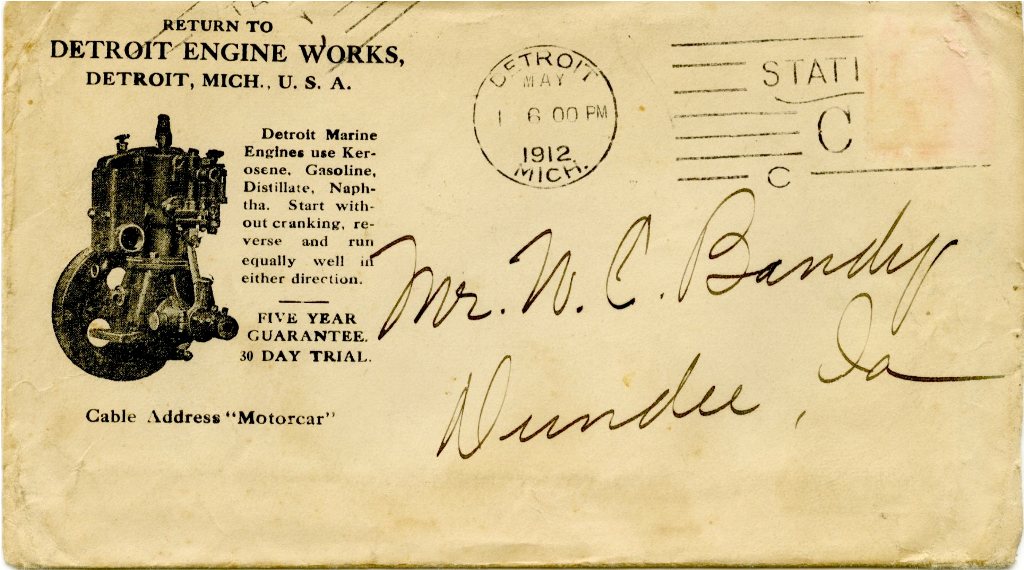 RETURN TO
DETROIT ENGINE WORKS,
DETROIT, MICH., U. S. A.
Detroit Marine
Engines use Ker-
osene, Gasoline,
Distillate, Naph-
tha. Start with-
out cranking, re-
verse and run
equally well in
either direction.
FIVE YEAR
GUARANTEE.
30 DAY TRIAL.
Cable Address "Motorcar"
DETROIT
MAY
1 6 00 PM
1912
MICH.
STATI
C
C
Mr. W. C. Bandy
Dundee, Ia